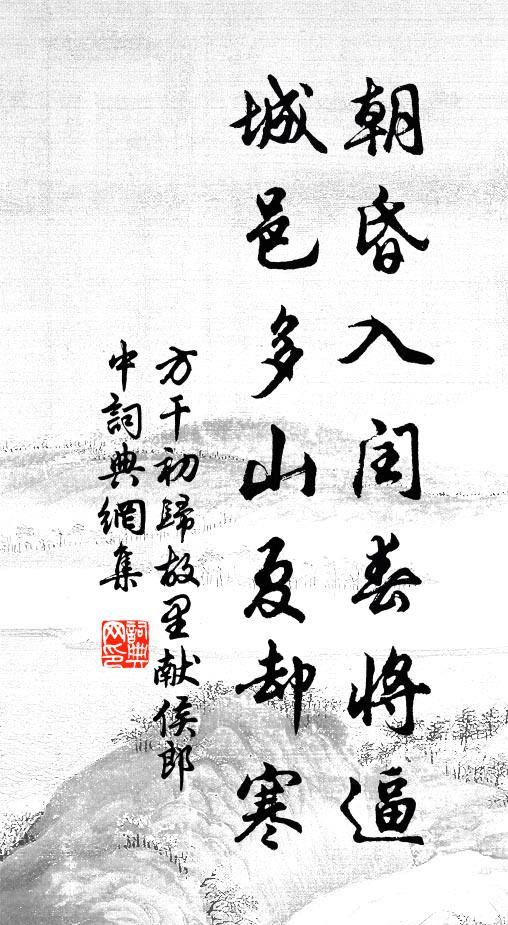 朝昏入閏春將逼
城邑多山夏却寒
方干初歸故里献侯郎
中詞典網集
詞典网印